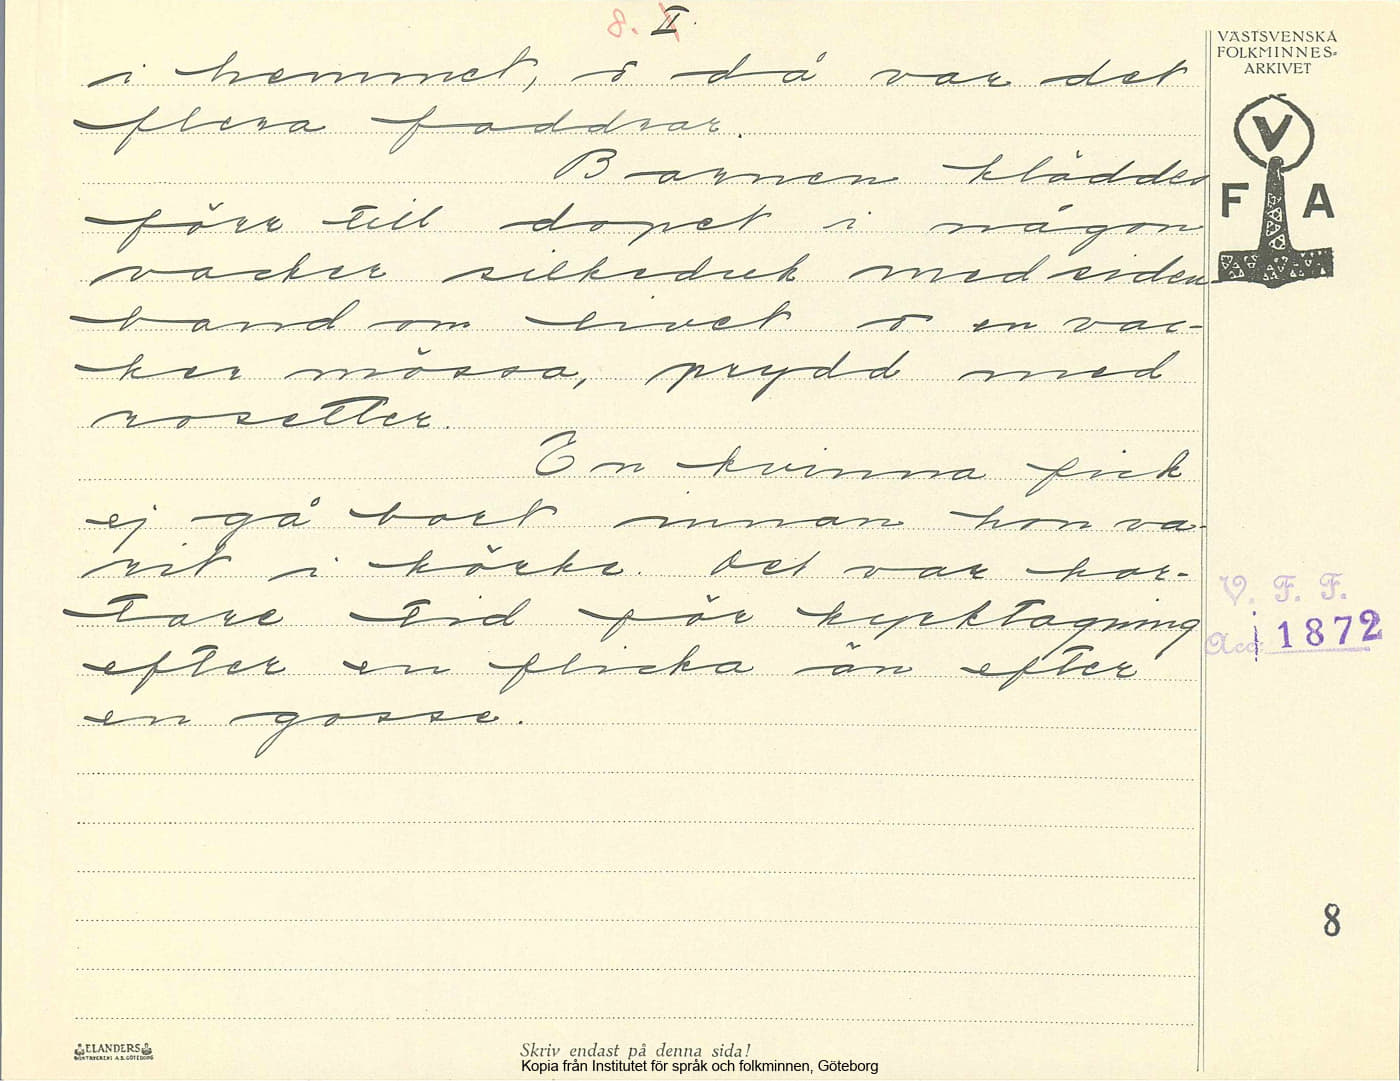 8. II.
VÄSTSVENSKA
FOLKMINNES-
ARKIVET
V
F A
i hemmet, o då var det
flera faddrar.
Barnen kläddes
förr till dopet i någon
vacker silkeduk med siden
band om livet o en vac-
ker mössa, prydd med
rosetter.
En kvinna fick
ej gå bort innan hon va-
rit i körke. Det var kor-
tare tid för kyrktagning
efter en flicka än efter
en gosse.
V. F. F.
Acc. 1872
8
ELANDERS
BOKTRYCKERI A.B. GÖTEBORG
Skriv endast på denna sida!
Kopia från Institutet för språk och folkminnen, Göteborg